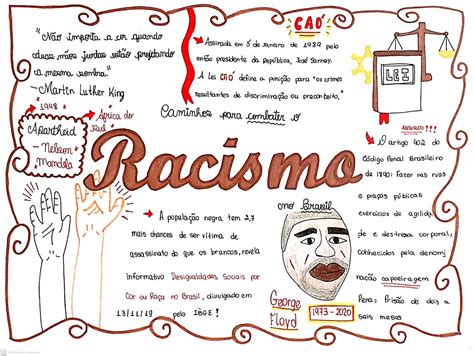 "Não importa a cor quando
duas mãos juntas estão projetando
a mesma sombra."
-Martin Luther King
CAÓ
Assinada em 5 de janeiro de 1989 pelo
então presidente da república, José Sarney.
A Lei CAÓ define a punição para "os crimes
resultantes de discriminação ou preconceito."
LEI
1948
África do
Sul
Apartheid
- Nelson
mandela
Caminhos para combater o
Racismo
no Brasil
O artigo 402 do
Código Penal Brasileiro
de 1890: Fazer nas ruas
e praças públicas
exercícios de agilida
de e destreza corporal,
conhecidos pela denomi
nação capoeiragem
Pena: Prisão de dois a
seis meses
A população negra tem 2,7
mais chances de ser vítima de
assassinato do que os brancos, revela
informativo Desigualdades Sociais por
Cor ou Raça no Brasil, divulgado em
13/11/19 pelo IBGE!
George
Floyd
1973 - 2020